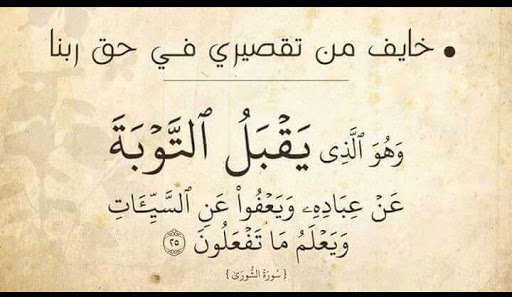 • خايف من تقصيري في حق ربنا
وَهُوَ ٱلَّذِى يَقْبَلُ ٱلتَّوْبَةَ
عَنْ عِبَادِهِۦ وَيَعْفُوا۟ عَنِ ٱلسَّيِّـَٔاتِ
وَيَعْلَمُ مَا تَفْعَلُونَ ٢٥
{ سُورَةُ الشُّورَىٰ }